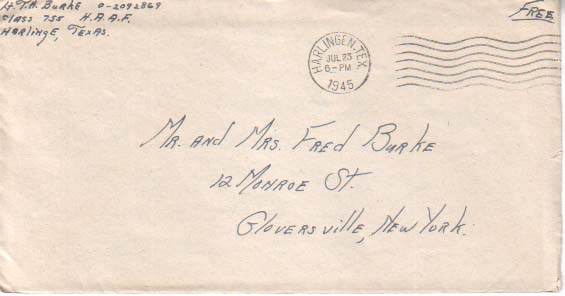 Lt. T.A. Burke O-2092869
Class 755 H.A.A.F.
Harlinge, Texas.
FREE
HARLINGEN, TEX.
JUL 23
6-PM
1945
Mr. and Mrs. Fred Burke
12 Monroe St.
Gloversville, New York.